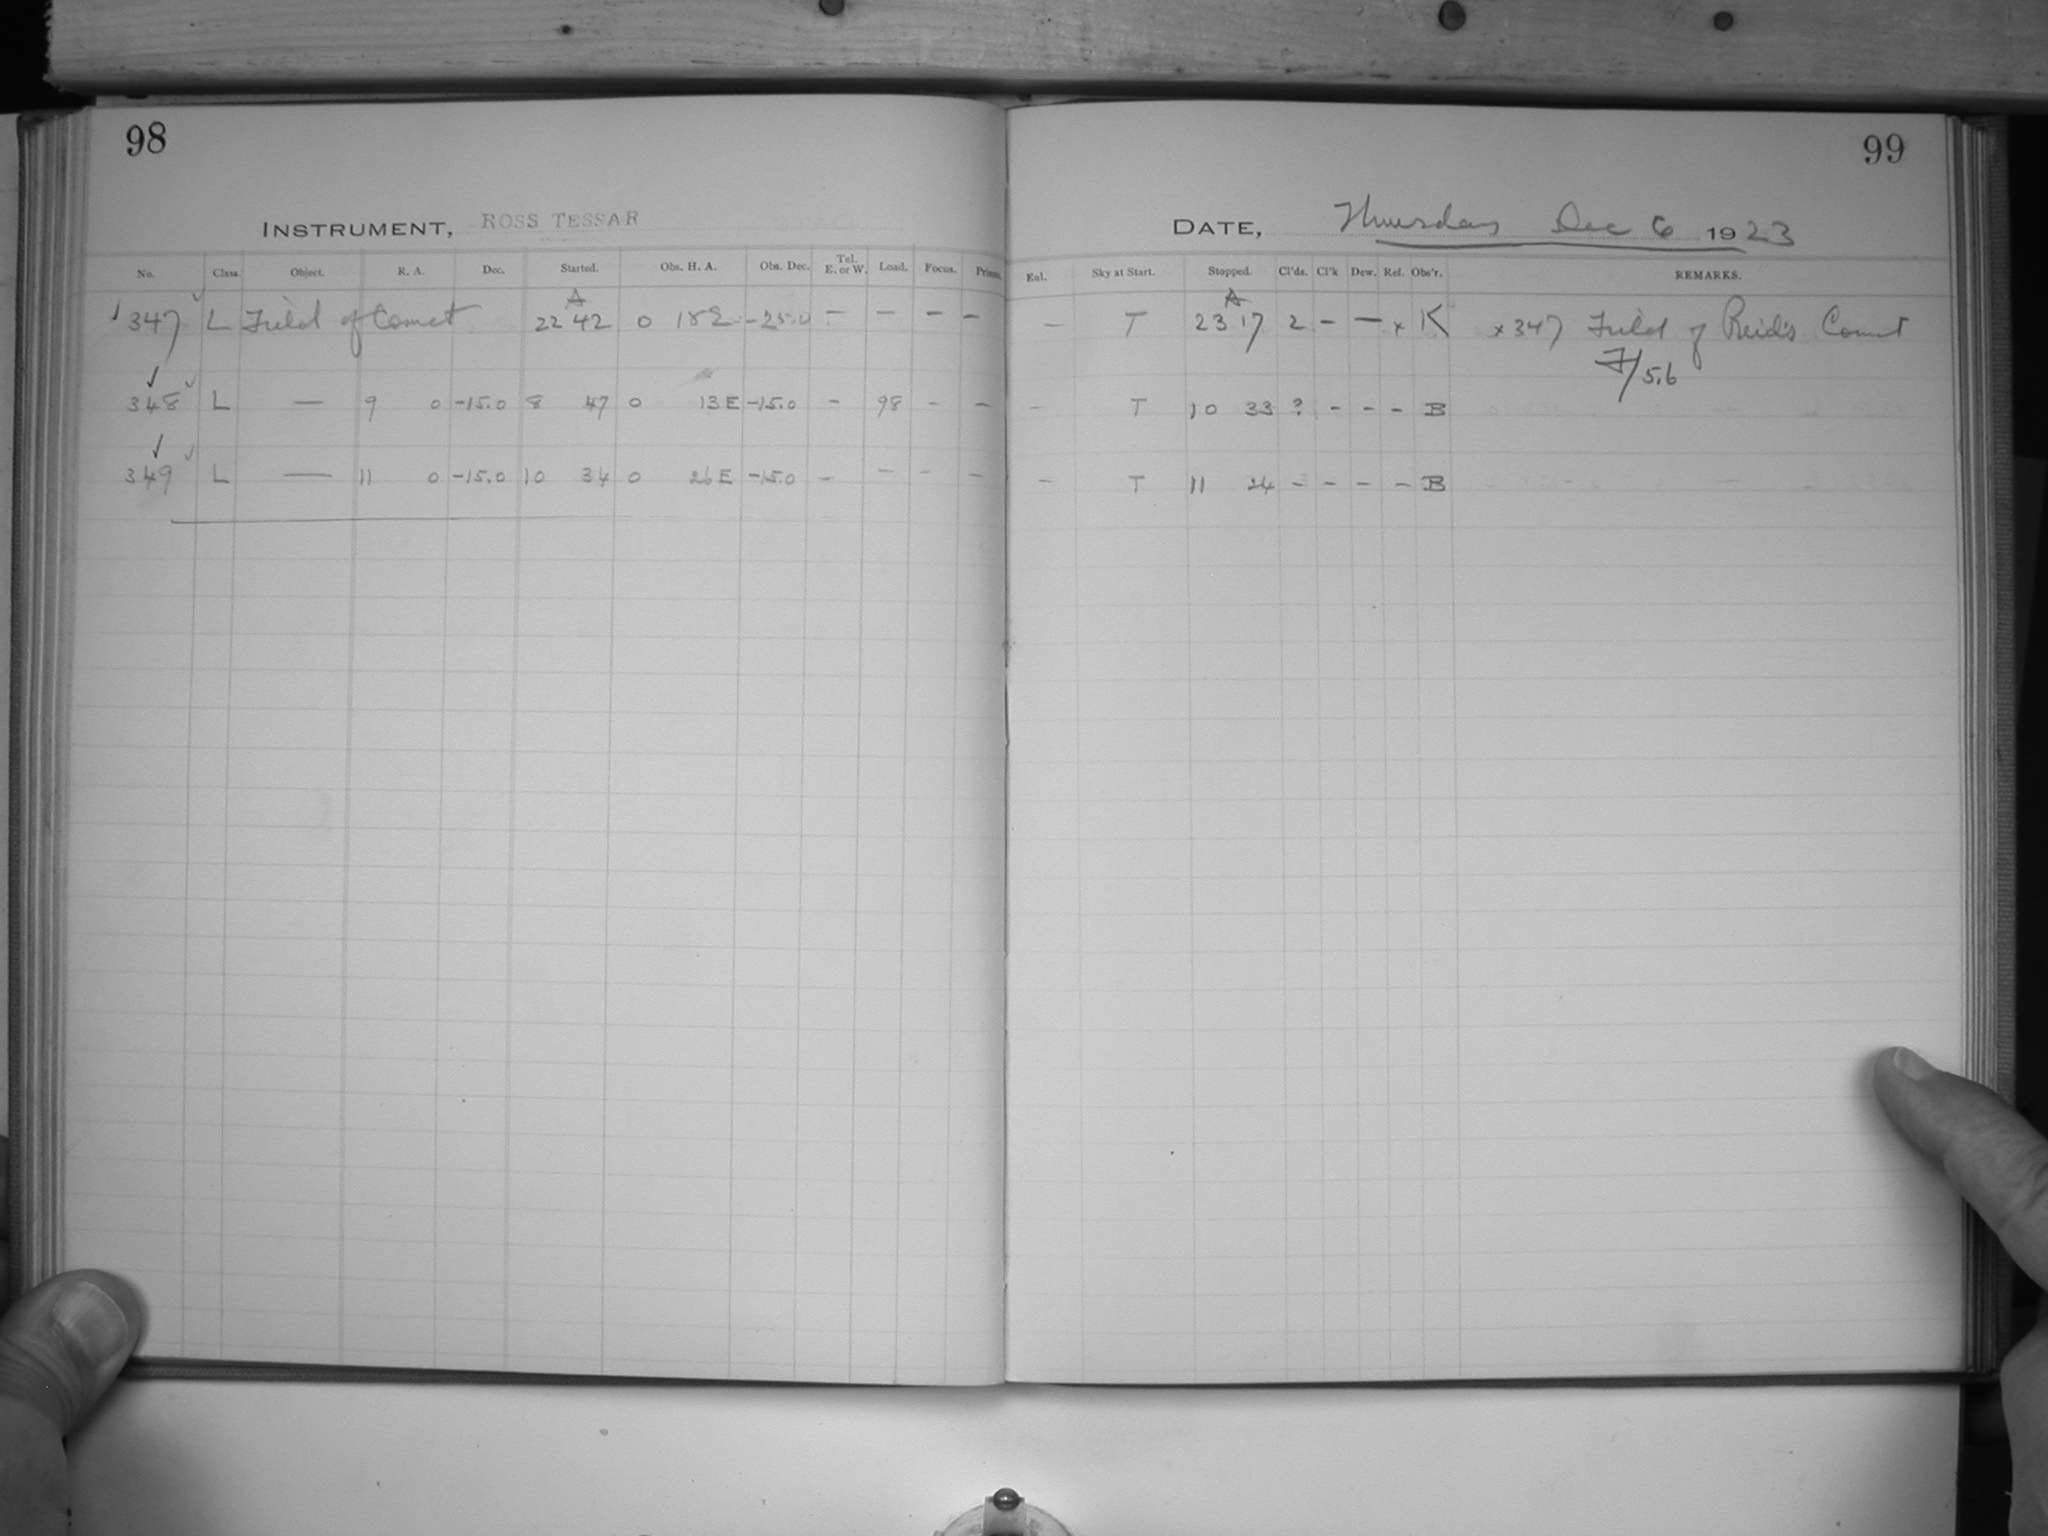 98
INSTRUMENT, ROSS TESSAR
No. Class. Object. R. A. Dec. Started. Obs. H. A. Obs. Dec. Tel. E. or W. Load. Focus. Prism.
A
347 L Field of Comet 22 42 0 18E -25.0 - - - -
348 L — 9 0 -15.0 8 47 0 13E -15.0 - 98 - -
349 L — 11 0 -15.0 10 34 0 26E -15.0 - - - -
99
DATE, Thursday Dec 6 1923
Enl. Sky at Start. Stopped. Cl'ds. Cl'k Dew. Ref. Obs'r. REMARKS.
A
- T 23 17 2 - - x K x 347 Field of Reid's Comet
F/5.6
- T 10 33 ? - - - B
- T 11 24 - - - - B